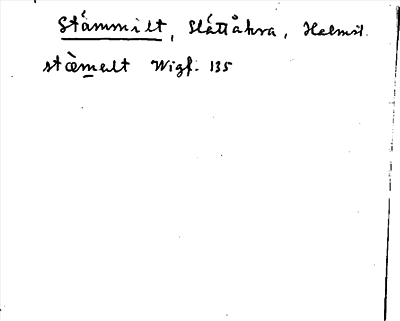 Stámmilt, Slättåkra, Halmst.
stæ̀melt Wigf. 135